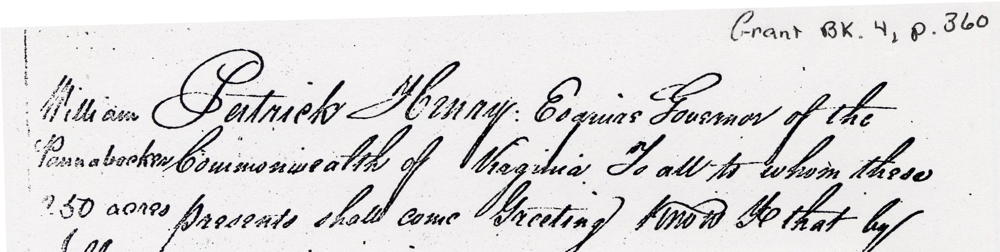 Grant BK. 4, p. 360
William Patrick Henry. Esquire Governor of the
Pannabecker Commonwealth of Virginia To all to whom these
250 acres presents shall come Greeting Know Ye that by